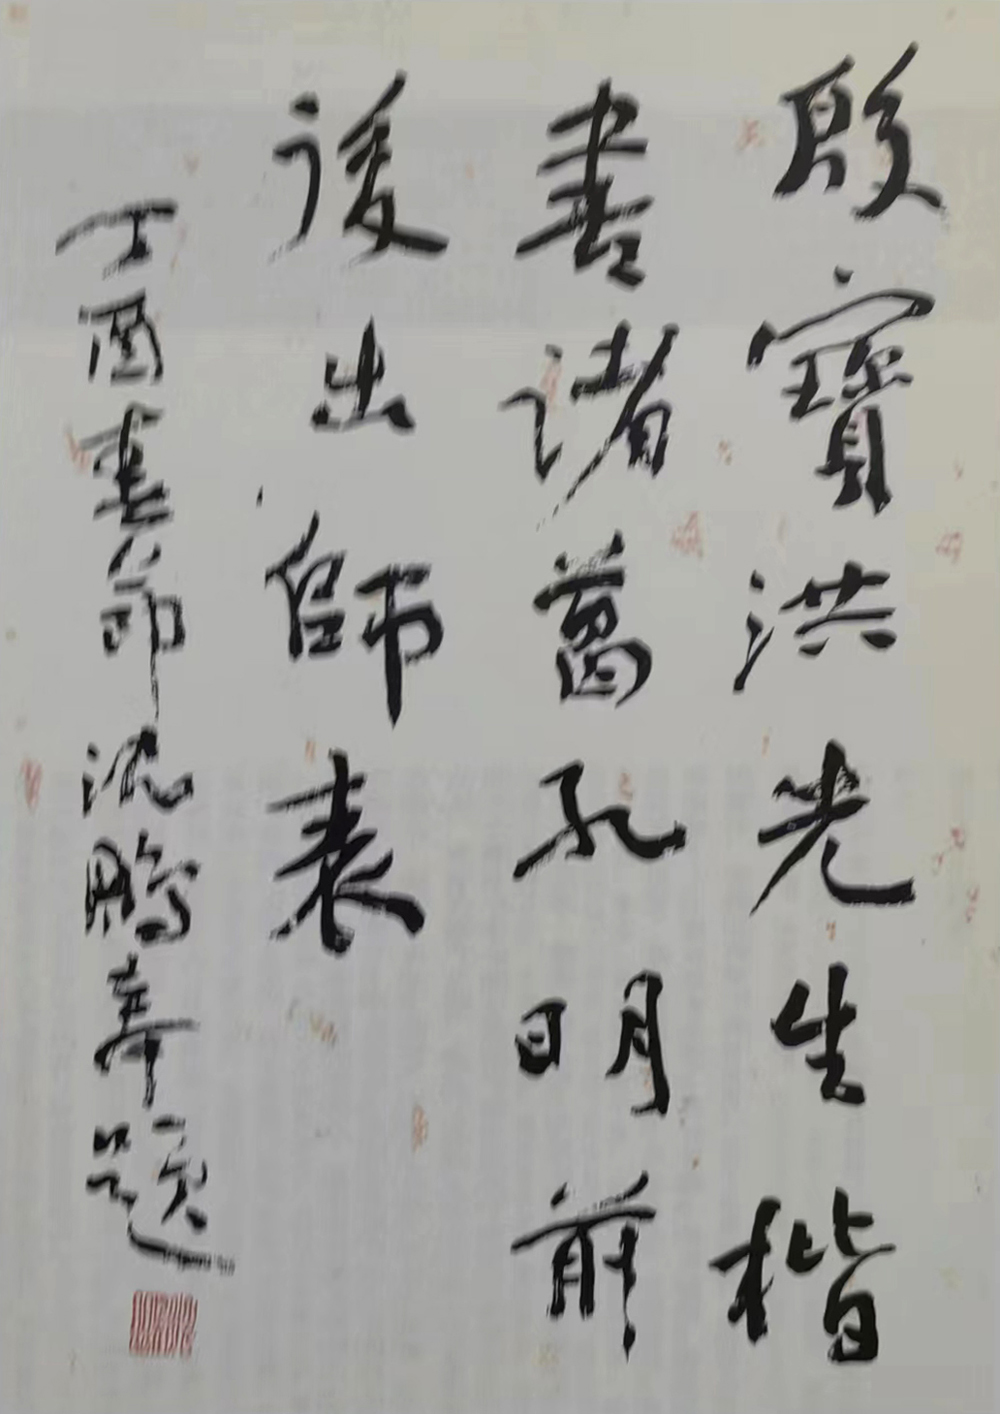 殷寶洪光生楷
書諸葛孔明前
後出師表
丁酉春節沈鵬奉題